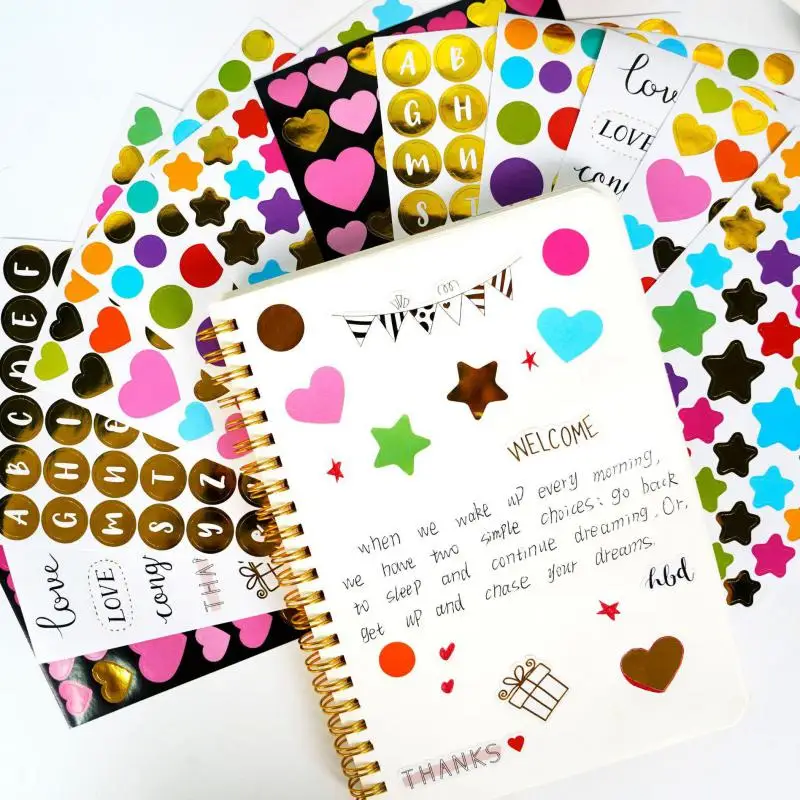 A B
G H
M N
S T
love
LOVE
cong
WELCOME
when we wake up every morning,
we have two simple choices: go back
to sleep and continue dreaming. Or,
get up and chase your dreams.
hbd
THANKS
A B C D E F
G H I
M N
S T
Y Z
love
LOVE
cong
THAN